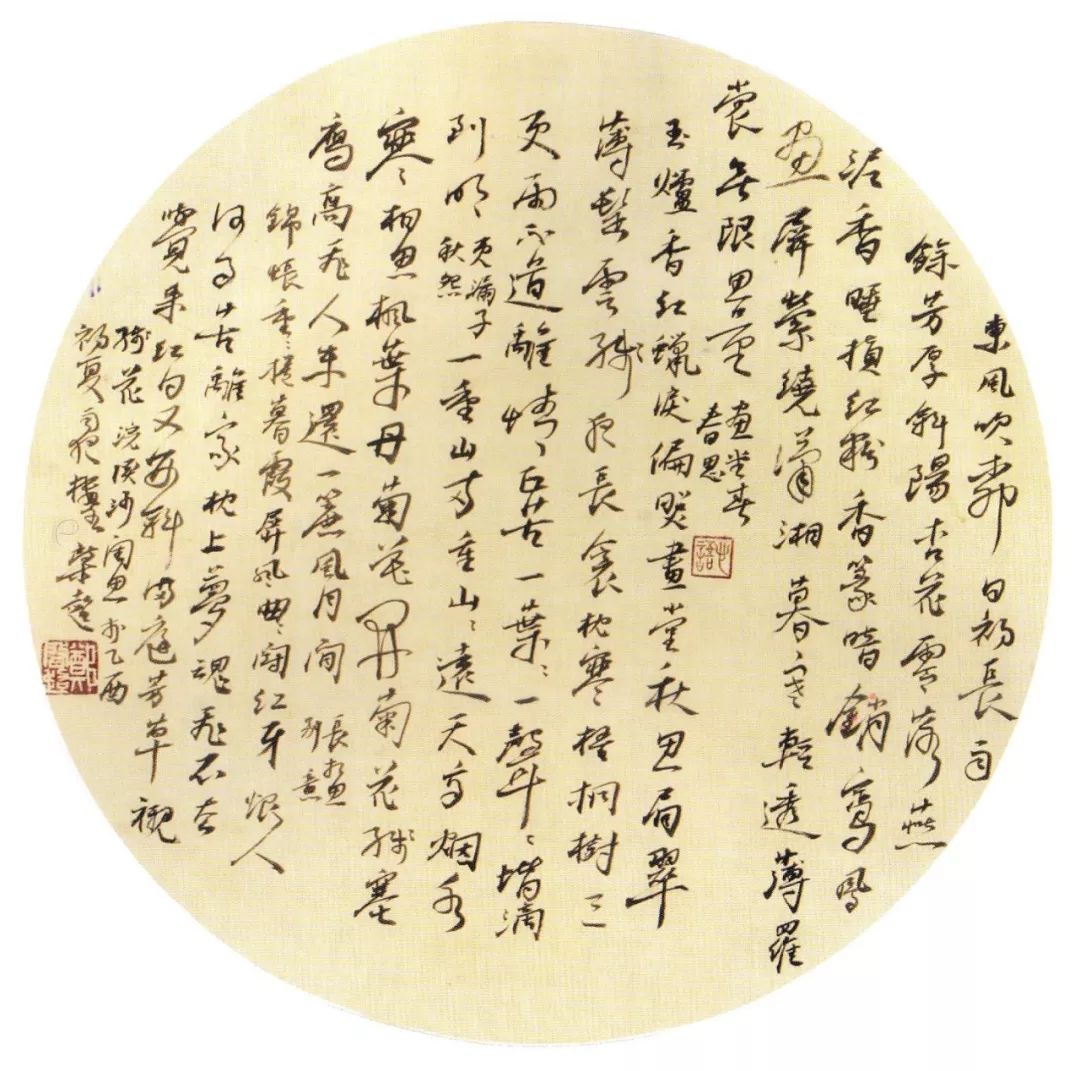 東風吹柳日初長雨
餘芳草斜陽杏花零落燕
泥香睡損紅妝香篆暗銷鸞鳳
畫屏縈繞瀟湘暮寒輕透薄羅
裳無限思量 畫堂春
春思
玉爐香紅蠟淚偏照畫堂秋思眉翠
薄鬢雲殘夜長衾枕寒梧桐樹三
更雨不道離情〻正苦一葉〻一聲〻堦滴
到明 更漏子
秋怨
一重山兩重山〻遠天高烟水
寒〻相思楓葉丹菊花開菊花殘塞
雁高飛人未還一簾風月閒 長相思
別意
錦帳重〻捲暮霞屏風曲〻鬪紅牙恨人
何事苦離家枕上夢魂飛不去
覺來紅日又西斜滿庭芳草襯
殘花 浣溪沙 閨思 於乙酉
初夏雨夜